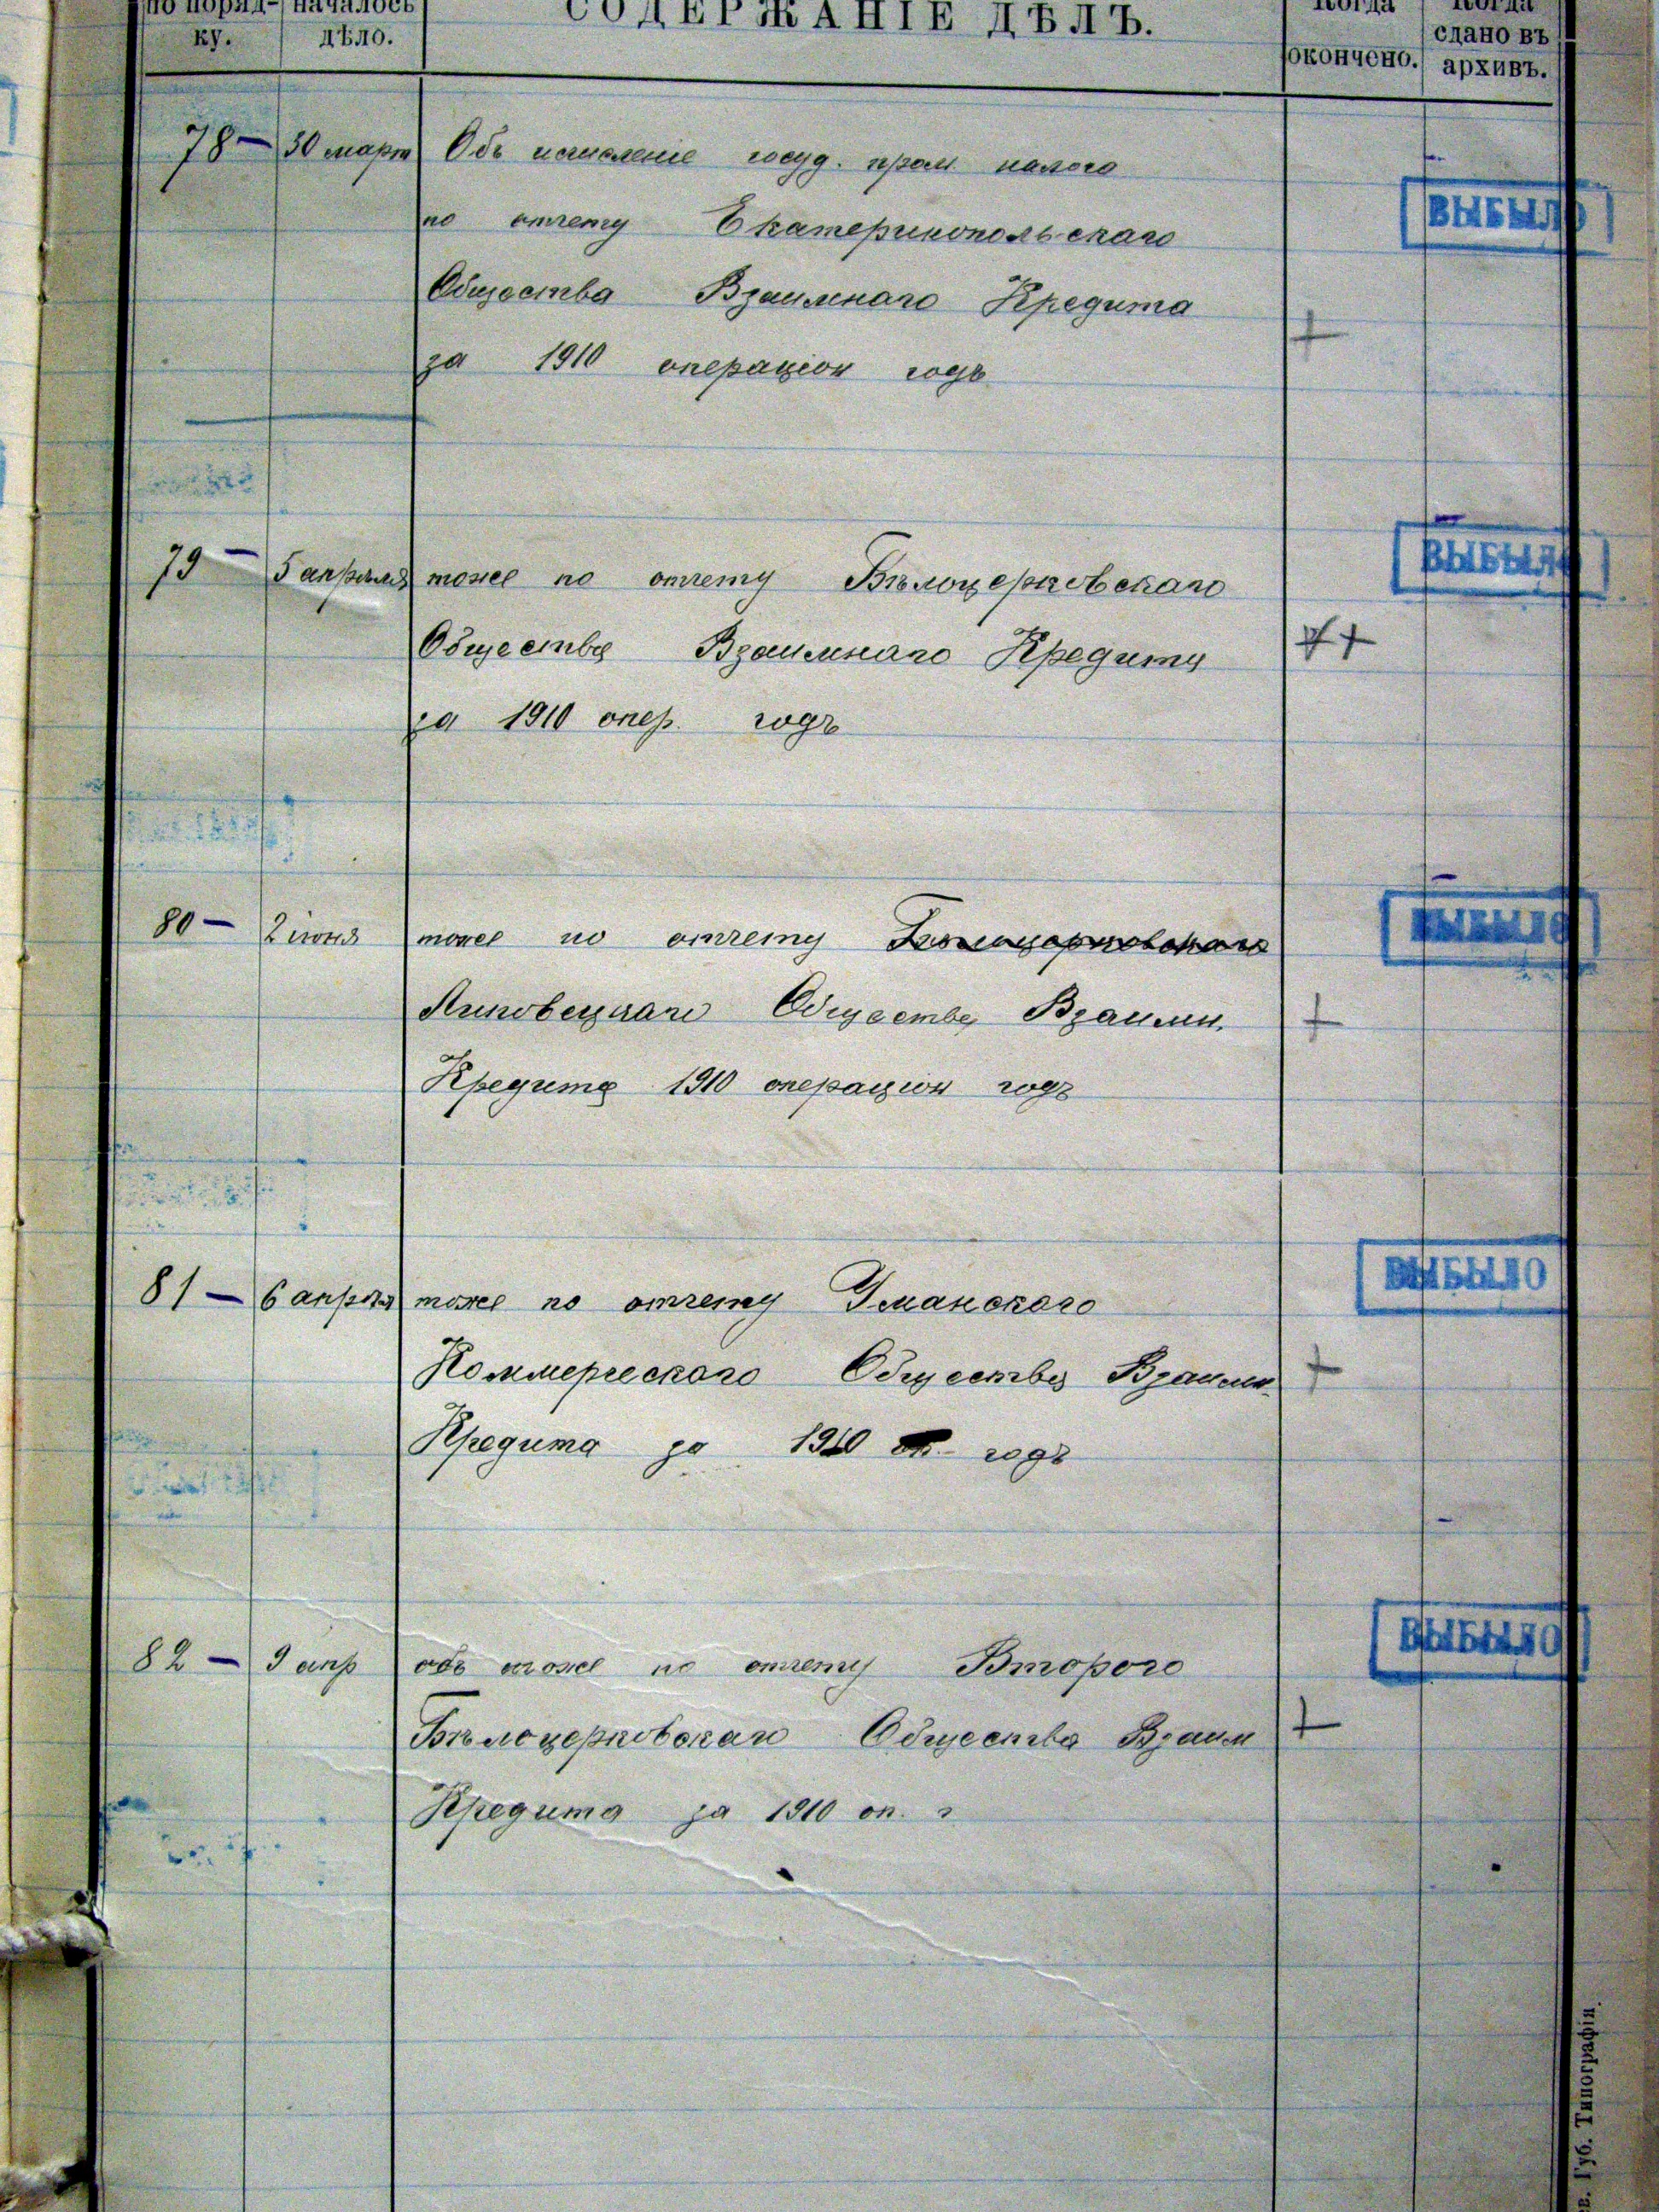 по поряд- началось СОДЕРЖАНІЕ ДѢЛЪ. Когда Когда
ку. дѣло. окончено. сдано въ
архивъ.
78 — 30 март Объ исчисленіе госуд. пром. налога
ВЫБЫЛО
по отчету Екатеринопольскаго
Общества Взаимнаго Кредита
+
за 1910 операціон годъ
79 — 5 апрѣля тоже по отчету Бѣлоцерковскаго
ВЫБЫЛО
Общества Взаимнаго Кредита
за 1910 опер. годъ
80 — 2 іюня тоже по отчету Бѣлоцерковскаго
ВЫБЫЛО
Липовецкаго Общества Взаимн.
+
Кредита 1910 операціон годъ
81 — 6 апрѣля тоже по отчету Уманскаго
ВЫБЫЛО
Коммерческаго Общества Взаимн.
+
Кредита за 1910 оп. годъ
82 — 9 апр объ тоже по отчету Второго
ВЫБЫЛО
Бѣлоцерковскаго Общества Взаим
+
Кредита за 1910 оп. г
Губ. Типографія.